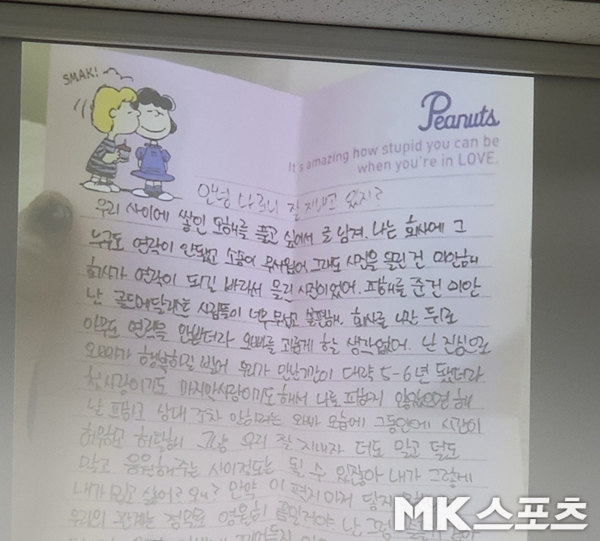 SMAK!
Peanuts
It's amazing how stupid you can be
when you're in LOVE.
안녕 나로니 잘 지내고 있지?
우리 사이에 쌓인 오해를 풀고 싶어서 글 남겨. 나는 회사에 그
누구도 연락이 안되고 소송이 무서웠어 그래도 사진을 올린 건 미안해
회사가 연락이 되길 바래서 올린 사진이었어. 피해를 준건 미안
난 골드메달리스트 사람들이 너무 무섭고 불편해. 회사를 나간 뒤로
아무도 연락을 안받더라 오빠를 괴롭게 할 생각없어. 난 진심으로
오빠가 행복하길 빌어 우리가 만난기간이 대략 5-6년 됐더라
첫사랑이기도 마지막사랑이기도 해서 나를 피하지 않았으면 해
날 피하고 상대 조차 안하려는 오빠 모습에 그동안에 시간이
허무하고 허탈해 그냥 우리 잘 지내자 더도 말고 덜도
말고 응원해주는 사이정도는 될 수 있잖아 내가 그렇게
내가 밉고 싫어? 왜? 만약 이 편지마저
우리의 관계는 정말로 영원히 끝일거야 난
MK스포츠